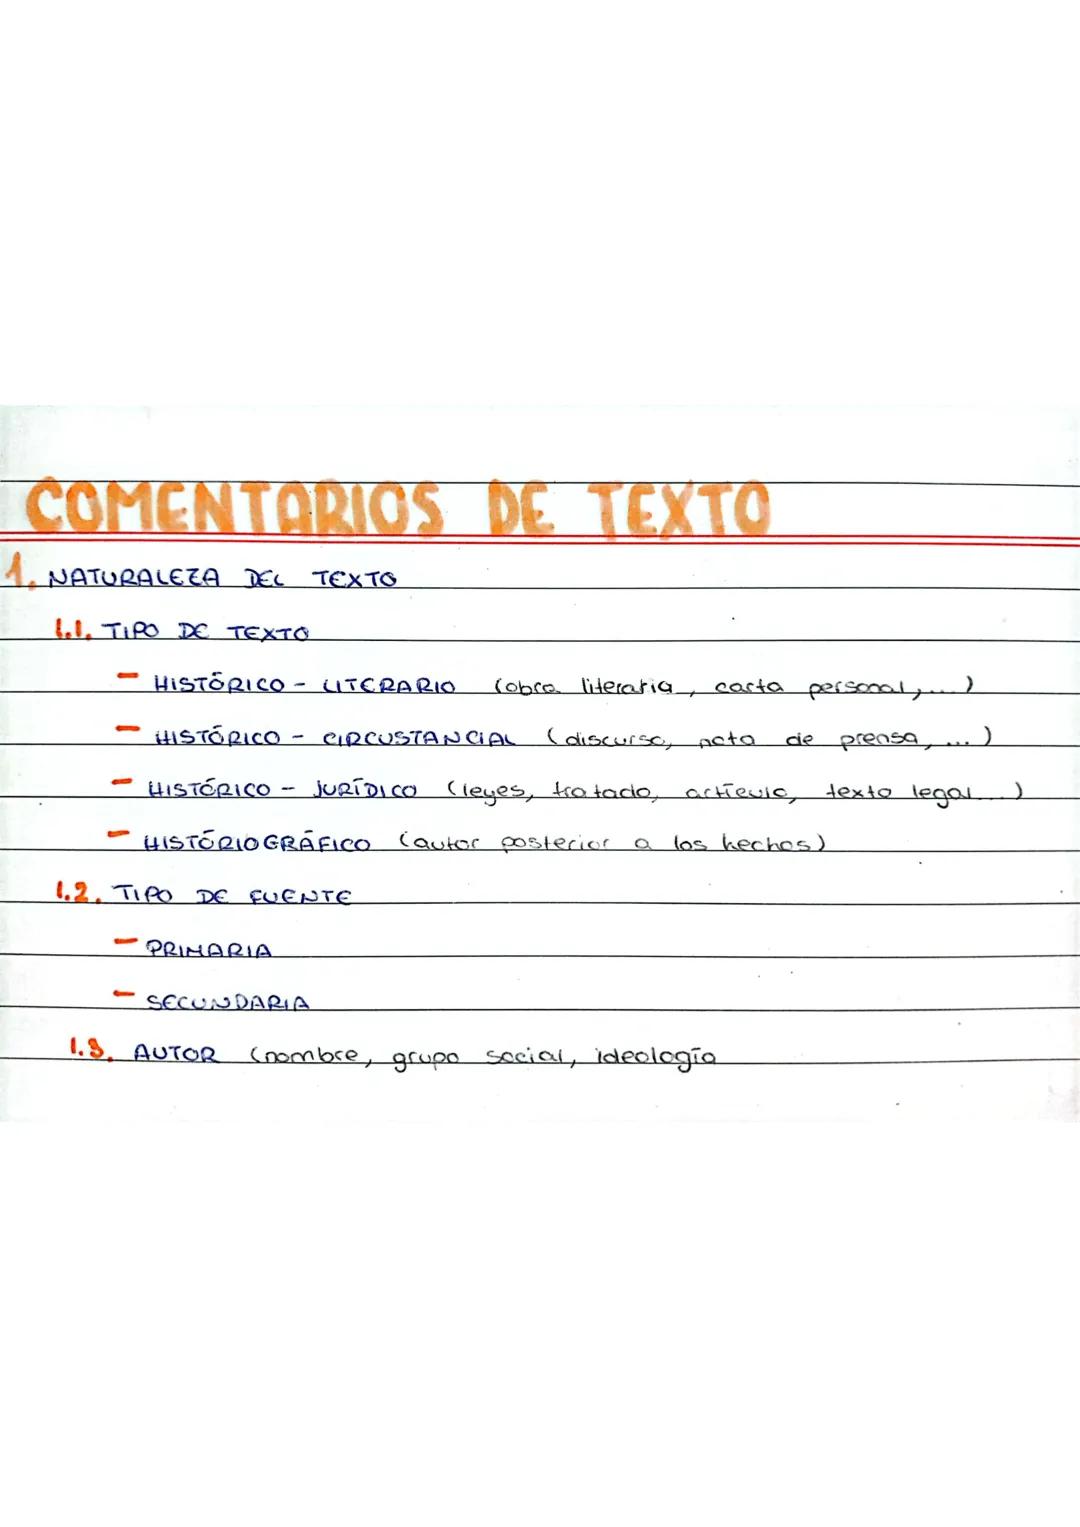 COMENTARIOS DE TEXTO
1. NATURALEZA DEL TEXTO
1.1. TIPO DE TEXTO
- HISTÓRICO - LITERARIO (obra literaria, carta personal,...)
- HISTÓRICO - CIRCUSTANCIAL (discurso, nota de prensa,...)
- HISTÓRICO - JURÍDICO (leyes, tratado, artículo, texto legal...)
- HISTÓRIOGRÁFICO (autor posterior a los hechos)
1.2. TIPO DE FUENTE
- PRIMARIA
- SECUNDARIA
1.3. AUTOR (nombre, grupo social, ideología